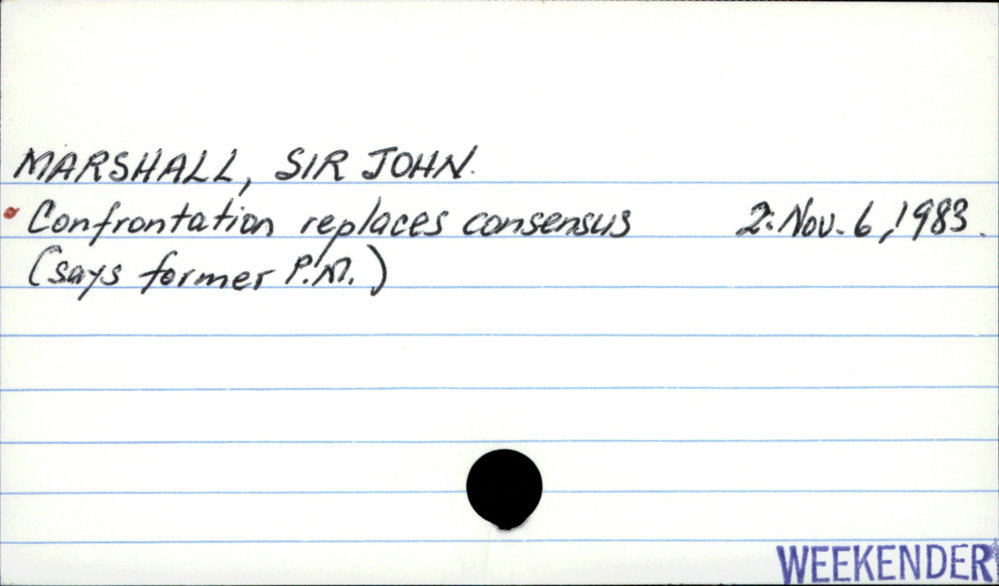 MARSHALL, SIR JOHN.
• Confrontation replaces consensus 2: Nov. 6, 1983.
(says former P.M.)
WEEKENDER